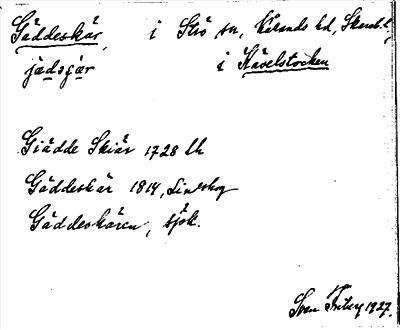 Gäddeskär, i Strö sn, Kållands hd, Skarab. l.,
jädsʒär i Häselstocken
Giädde Skiär 1728 Lh
Gäddeskär 1814, Lindskog
Gäddeskären, sjök.
Sven Friberg 1927.